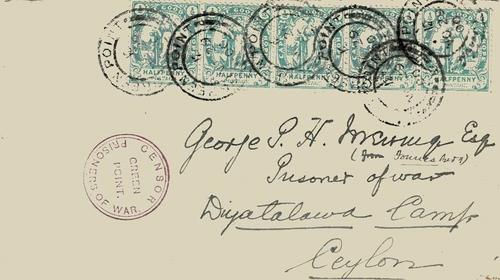 HALFPENNY HALFPENNY HALFPENNY HALFPENNY HALFPENNY
GREEN POINT
George P. H. Esq
(from
Prisoner of war
Diyatalawa Camp
Ceylon
CENSOR
GREEN
POINT.
PRISONERS OF WAR.